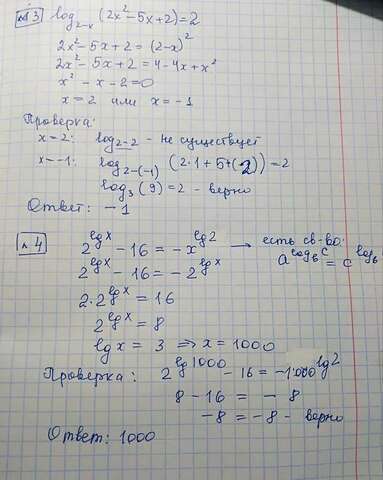 №3 log₂₋ₓ (2x² − 5x + 2) = 2
2x² − 5x + 2 = (2−x)²
2x² − 5x + 2 = 4 − 4x + x²
x² − x − 2 = 0
x = 2 или x = −1
Проверка:
x = 2: log₂₋₂ - не существует
x = −1: log₂₋₍₋₁₎ (2·1 + 5 + (2)) = 2
log₃ (9) = 2 - верно
Ответ: −1
№4 2^(lg x) − 16 = −x^(lg 2) → есть св-во:
2^(lg x) − 16 = −2^(lg x) a^(log_b c) = c^(log_b
2·2^(lg x) = 16
2^(lg x) = 8
lg x = 3 ⇒ x = 1000
Проверка: 2^(lg 1000) − 16 = −1000^(lg 2)
8 − 16 = − 8
−8 = −8 - верно
Ответ: 1000